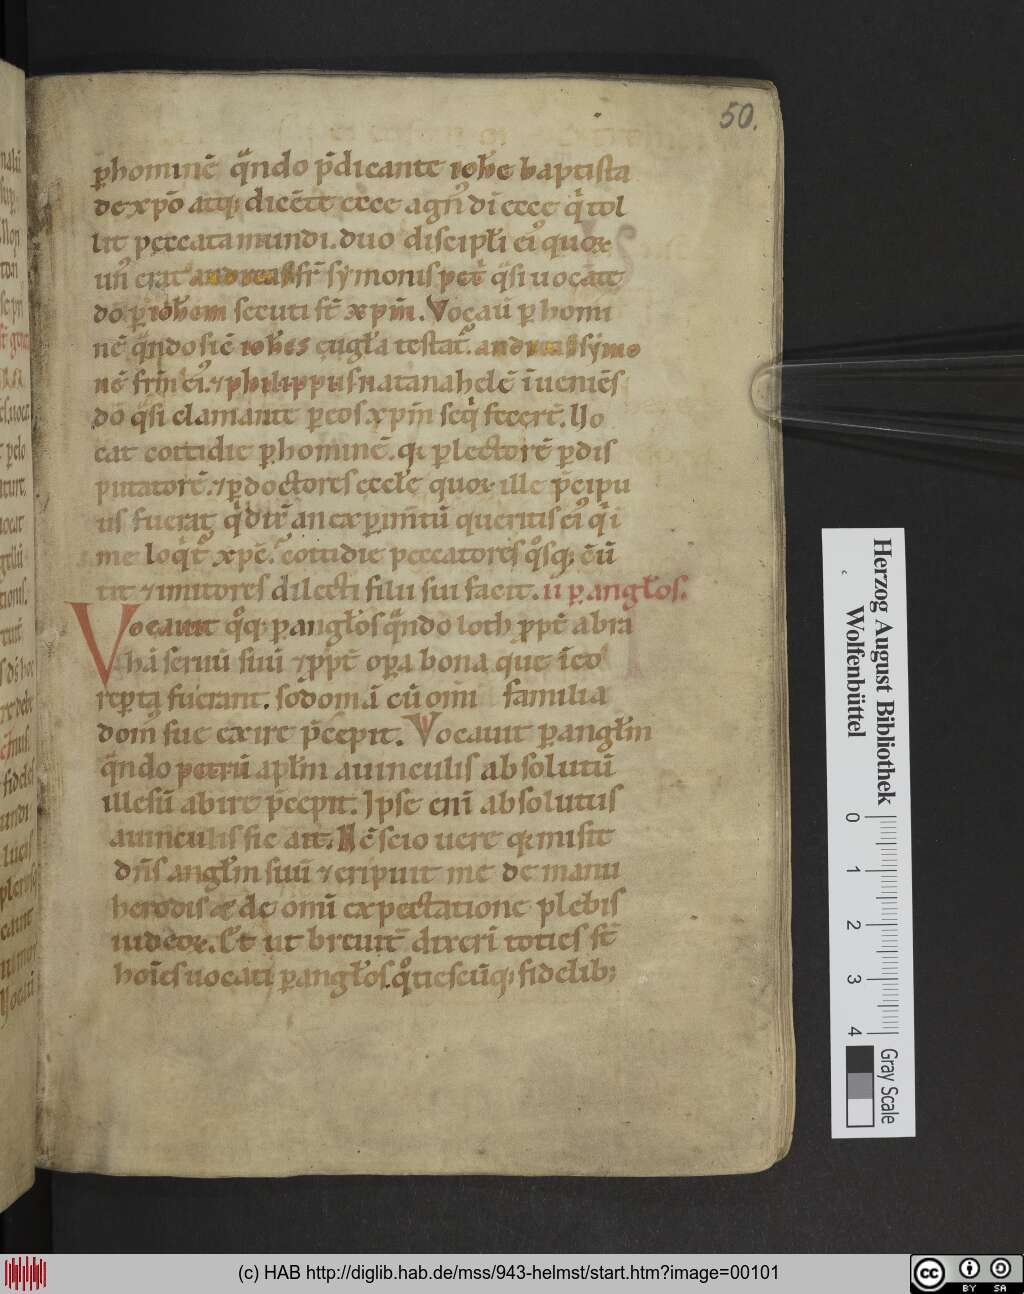 50.
ꝑhominē q̄ndo p̄dicante ioh̄e baptista
dexp̄o atq; dicēte ecce agn᷒ dī ecce q̇ tol
lit peccata mundi. duo discipl̄i ei᷒ quoꝝ
un᷒ erat andreas fr̄ symonis pet̄ q̄si uocāte
dō ꝑ ioh̄em secuti st̄ xp̄m. Vocaū ꝑ homi
nē q̄ndo sic̄ ioh̄es eug̅l̅a testat᷒. andreas symo
nē frm̄ ei᷒. ⁊ philippus natanahelē īueniēs
dō q̄si clamante ꝑ eos xp̄m seq̇ fecert̄. Uo
cat cottidie ꝑ hominē. q̨ ꝑ lectorē ꝑ dis
putatorē. ⁊ ꝑ doctores eccl̄e quoꝝ ille p̄cipu
us fuerat q̇ dix̄ an exꝑim̄tū queritis ei᷒ q̇ i
me loq̇t᷒ xpc̄. cottidie peccatores qͦsq; cū
tit ⁊ imitores dilecti filii sui facit. ii ꝑ angl̄os.
Vocauit qͦq; ꝑ angl̄os q̄ndo loth ꝓpt̄ abra
hā seruū suū ⁊ ꝓpt̄ oꝑa bona que ī eo
reꝑta fuerant. sodomā cū om̄i familia
dom᷒ sue exire p̄cepit. Vocauit ꝑ angl̄m
q̄ndo petrū apl̄m a uinculis absolutū
illesū abire p̄cepit. Ipse enī absolutus
a uinculis sic ait. Nc̄ scio uere q̨ misit
dn̄s angl̄m suū ⁊ eripuit me de manu
herodis ⁊ de om̄i expectatione plebis
iudeoꝝ. Et ut breuit᷒ dixerī toties st̄
hoīes uocati ꝑ angl̄os. qͦtiescūq; fidelib;
Herzog August Bibliothek
Wolfenbüttel
0 1 2 3 4
Gray Scale
(c) HAB http://diglib.hab.de/mss/943-helmst/start.htm?image=00101
cc BY SA